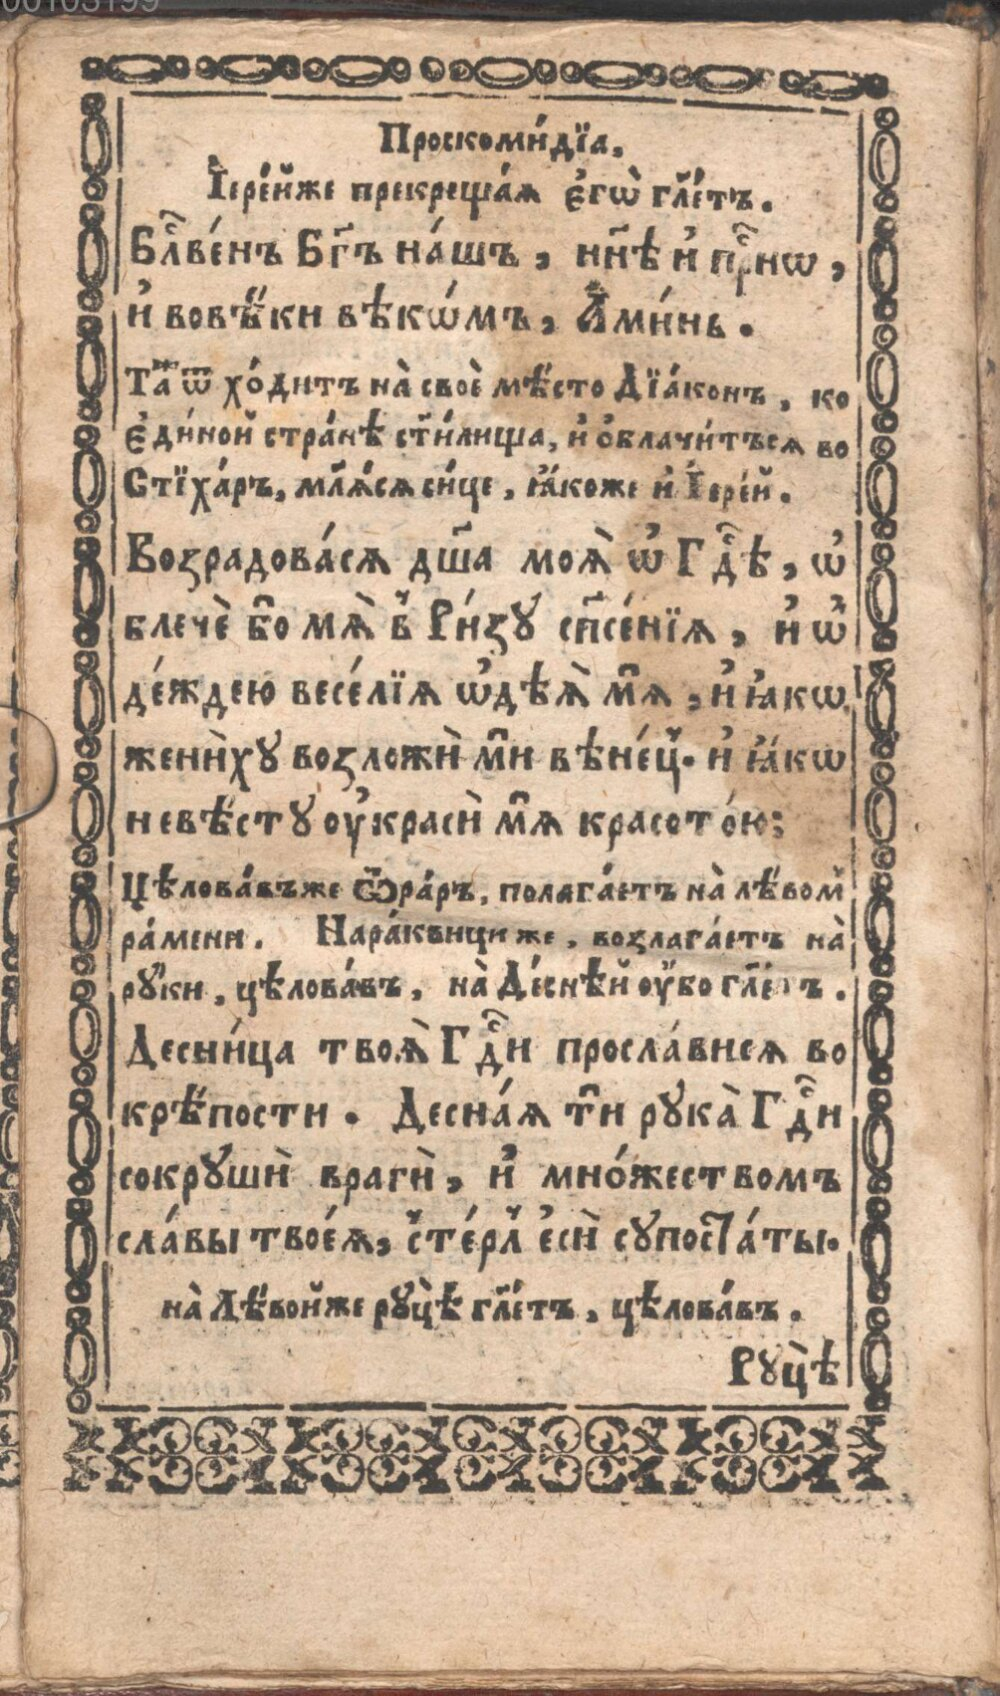 00103199
Проскоми́дїа,
І҆ере́йже прекреща́я є҆гѡ̀ гл҃етъ.
Бл҃ве́нъ Бг҃ъ на́шъ, нн҃ѣ и҆ пр҇нѡ,
и҆ вовѣ́ки вѣкѡ́мъ, А҆ми́нь.
Та́ ѿ хо́дитъ на̀ своѐ мѣ́сто Дїа́конъ, ко
є҆ди́ной стра́нѣ ст҃и́лища, и҆ ѻ҆блачи́тъсѧ во
Стїха́ръ, мл҃ѧ́сѧ си́це, ꙗ҆́коже и҆ І҆ере́й.
Возрадова́сѧ дш҃а моѧ̀ ѡ҆ Гд҇ѣ, ѡ҆
блечѐ бо мѧ̀ в Ри́зꙋ сп҃се́нїѧ, и҆ ѡ҆
де́ждею весе́лїѧ ѡ҆дѣѧ̀ мѧ, и҆ ꙗ҆кѡ
жени́хꙋ возложѝ ми вѣне́ц. и҆ ꙗ҆́кѡ
невѣ́стꙋ оу҆красѝ мѧ красото́ю:
Цѣлова́въже Ѡ҆ра́ръ, полага́етъ на̀ лѣ́вом
ра́мени. Нара́квици же, возлага́етъ на̀
рꙋ́ки, цѣлова́въ, на̀ Де́снѣй оу҆́бо гл҃етъ.
Десни́ца твоѧ̀ Гд҇и просла́висѧ во
крѣ́пости. Десна́ѧ ти рꙋка̀ Гд҇и
сокрꙋшѝ врагѝ, и҆ мно́жеством
сла́вы твое́ѧ, сте́рл є҆сѝ сꙋпоста́ты.
на̀ Лѣ́войже рꙋ́цѣ гл҃етъ, цѣлова́въ.
Рꙋ́цѣ